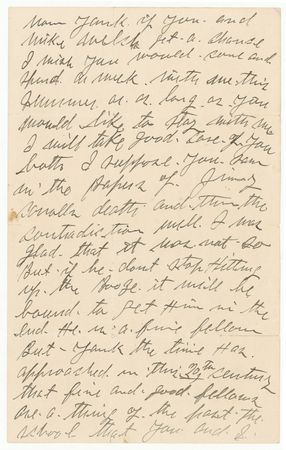 now Yank if you and
Mike Welsh get a chance
I wish you would come and
spend a week with me this
summer or as long as you
would like to stay with me
I will take good care of you
both I suppose you saw
in the papers of Jimmy
death and then the
contradiction well I was
glad that it was not so
But if he dont stop Hitting
up the Booze it will be
bound to get Him in the
end He is a fine fellow
But Yank the time Has
approached in this 20th century
that fine and good fellows
are a thing of the past the
school that you and I